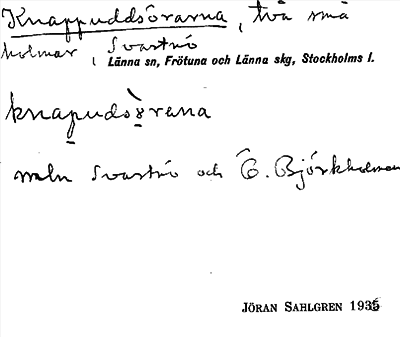 Knappuddsörarna, två små
holmar, Svartnö
Länna sn, Frötuna och Länna skg, Stockholms l.
knapudsörena
mln Svartnö och Ö. Björkholmen
JÖRAN SAHLGREN 1935